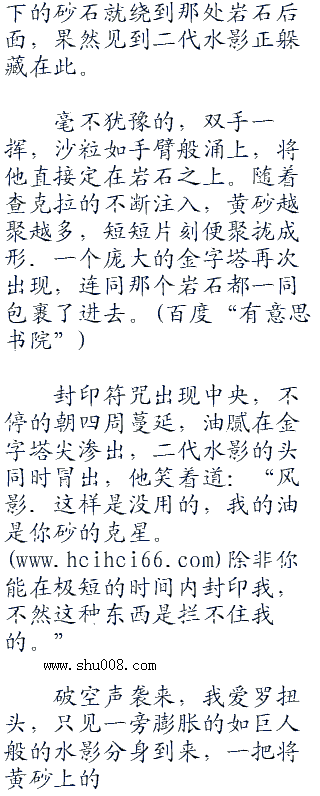 下的砂石就绕到那处岩石后
面，果然见到二代水影正躲
藏在此。
毫不犹豫的，双手一
挥，沙粒如手臂般涌上，将
他直接定在岩石之上。随着
查克拉的不断注入，黄砂越
聚越多，短短片刻便聚拢成
形．一个庞大的金字塔再次
出现，连同那个岩石都一同
包裹了进去。(百度“有意思
书院”)
封印符咒出现中央，不
停的朝四周蔓延，油腻在金
字塔尖渗出，二代水影的头
同时冒出，他笑着道：“风
影．这样是没用的，我的油
是你砂的克星。
(www.hcihci66.com)除非你
能在极短的时间内封印我，
不然这种东西是拦不住我
的。”
www.shu008.com
破空声袭来，我爱罗扭
头，只见一旁膨胀的如巨人
般的水影分身到来，一把将
黄砂上的